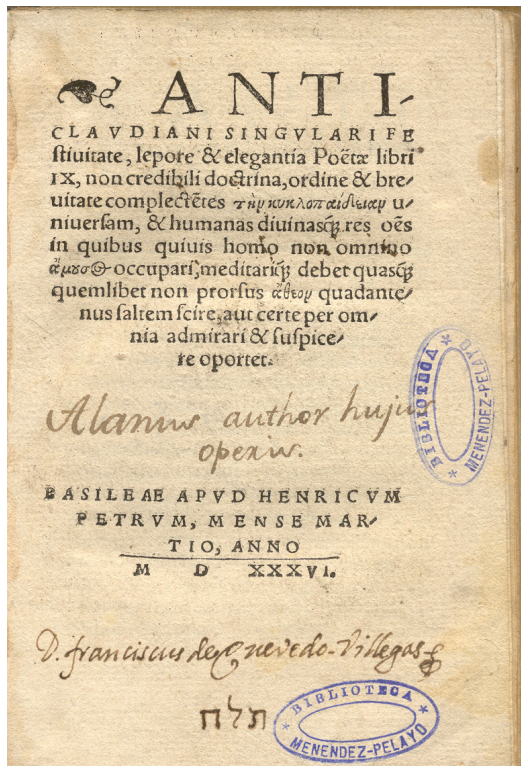 ANTI-
CLAVDIANI SINGVLARI FE
stiuitate, lepore & elegantia Poëtæ libri
IX, non credibili doctrina, ordine & bre-
uitate complectētes τὴν κυκλοπαιδείαν u-
niuersam, & humanas diuinasq́; res oēs
in quibus quiuis homo non omnino
ἄμουσος occupari, meditariq́; debet quasq́;
quemlibet non prorsus ἄθεον quadante-
nus saltem scire, aut certe per om-
nia admirari & suspice-
re oportet.
Alanus author hujus
operis.
BASILEAE APVD HENRICVM
PETRVM, MENSE MAR-
TIO, ANNO
M D XXXVI.
D. franciscus de Quevedo-Villegas
תלח
BIBLIOTECA
MENENDEZ-PELAYO
BIBLIOTECA
MENENDEZ-PELAYO